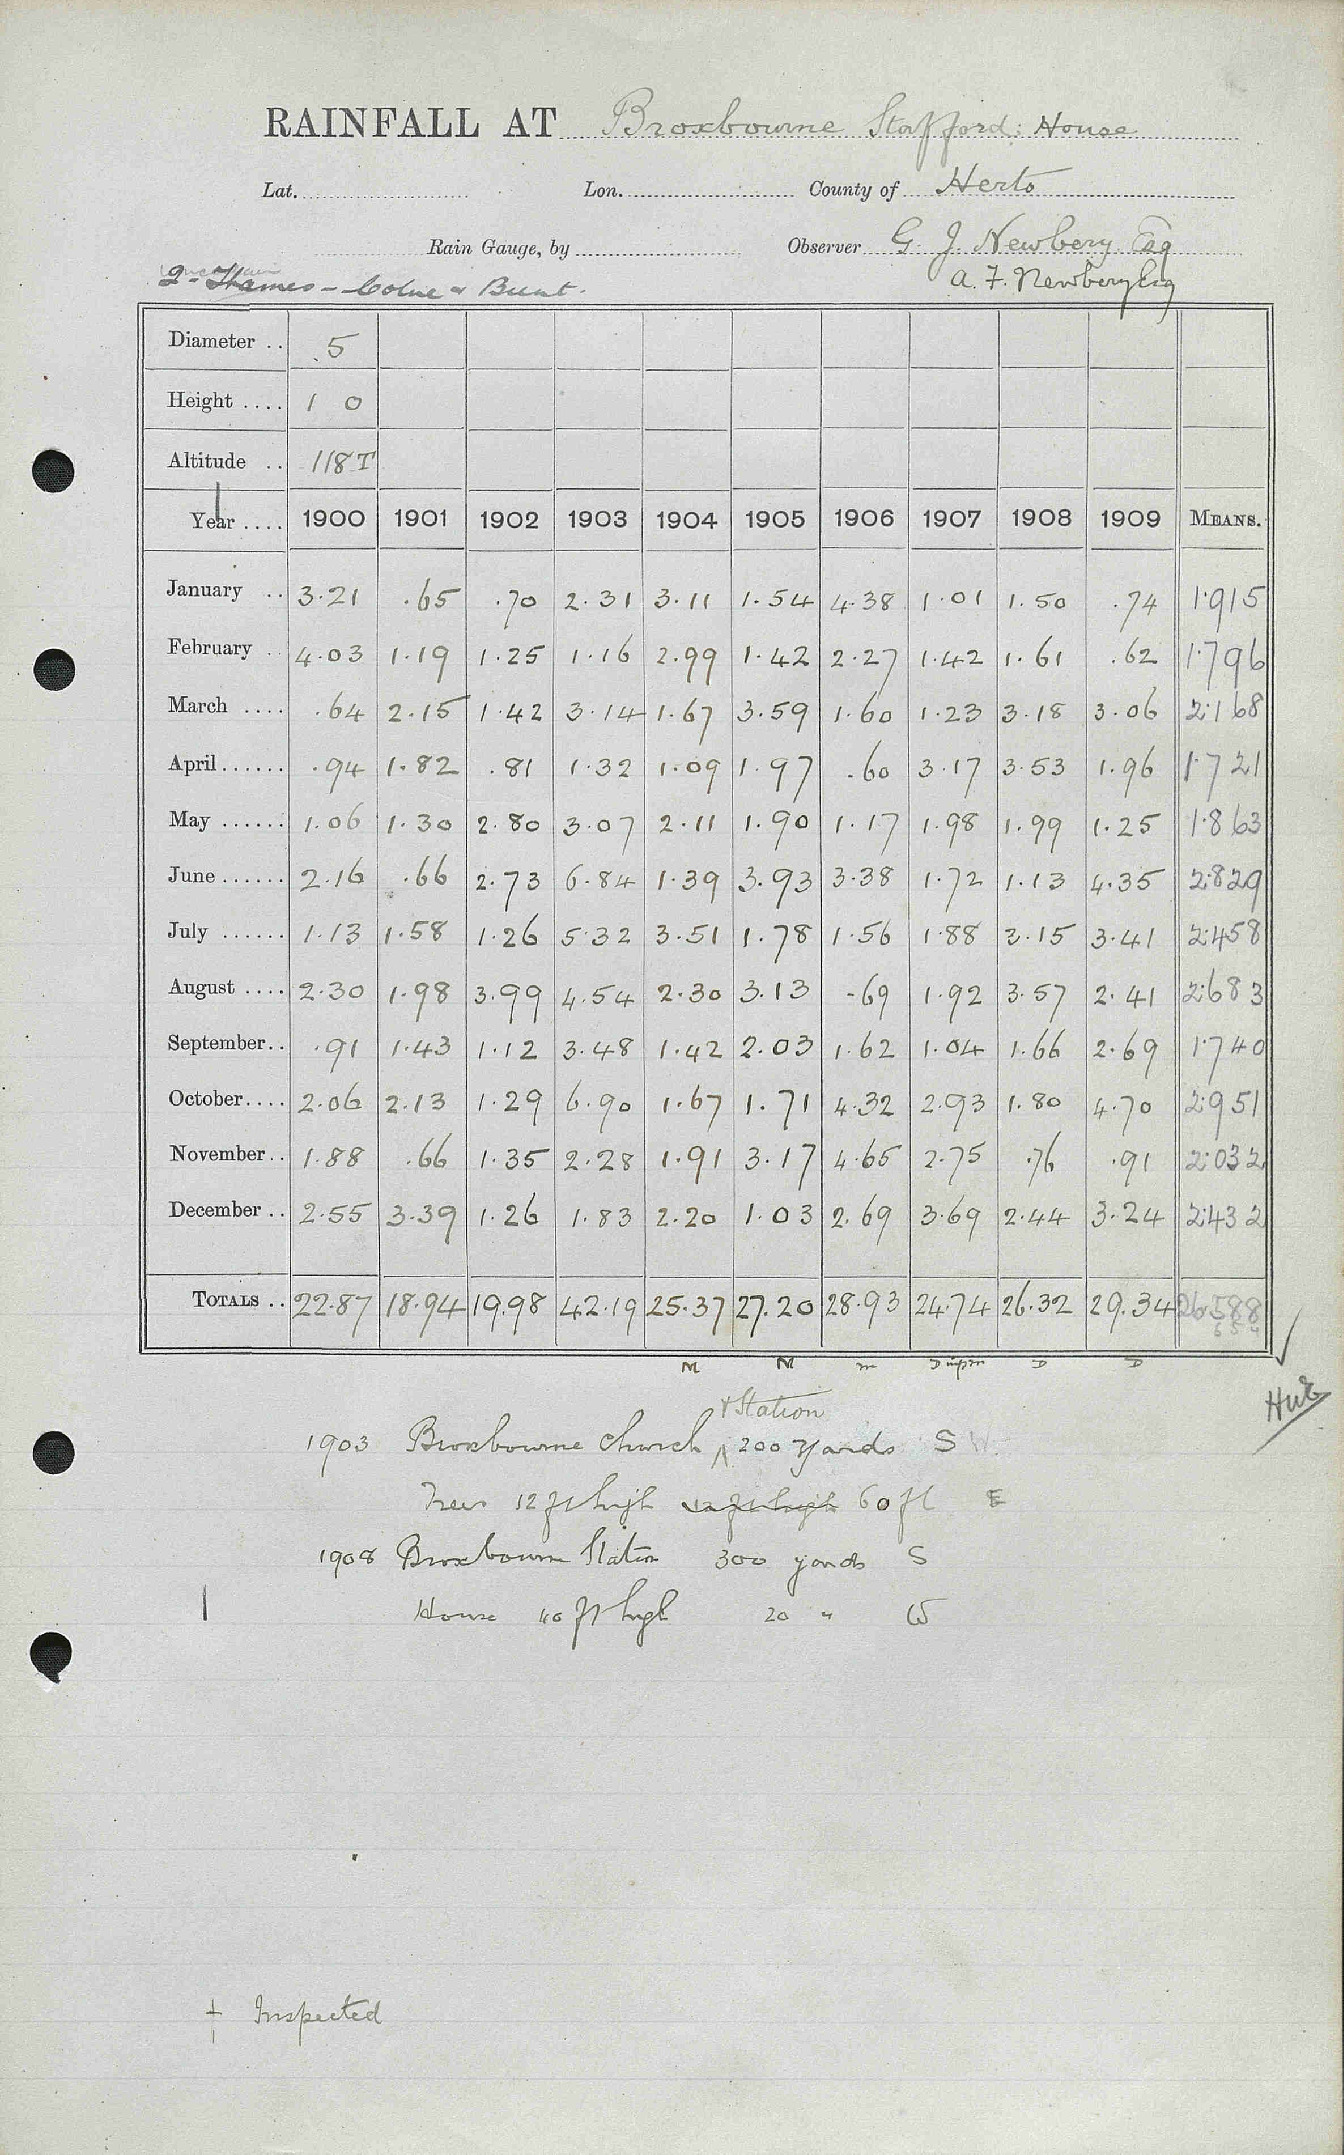 RAINFALL AT Broxbourne Stafford House
Lat. Lon. County of Herts
Rain Gauge, by Observer G. J. Newbery Esq
2- Thames - Colne & Bunt. A. F. Newbery Esq
Diameter .. 5
Height .... 1 0
Altitude .. 118 T
Year .... 1900 1901 1902 1903 1904 1905 1906 1907 1908 1909 MEANS.
January .. 3.21 .65 .70 2.31 3.11 1.54 4.38 1.01 1.50 .74 1.915
February .. 4.03 1.19 1.25 1.16 2.99 1.42 2.27 1.42 1.61 .62 1.796
March .... .64 2.15 1.42 3.14 1.67 3.59 1.60 1.23 3.18 3.06 2.168
April ...... .94 1.82 .81 1.32 1.09 1.97 .60 3.17 3.53 1.96 1.721
May ...... 1.06 1.30 2.80 3.07 2.11 1.90 1.17 1.98 1.99 1.25 1.863
June ...... 2.16 .66 2.73 6.84 1.39 3.93 3.38 1.72 1.13 4.35 2.829
July ...... 1.13 1.58 1.26 5.32 3.51 1.78 1.56 1.88 3.15 3.41 2.458
August .... 2.30 1.98 3.99 4.54 2.30 3.13 .69 1.92 3.57 2.41 2.683
September .. .91 1.43 1.12 3.48 1.42 2.03 1.62 1.04 1.66 2.69 1.740
October .... 2.06 2.13 1.29 6.90 1.67 1.71 4.32 2.93 1.80 4.70 2.951
November .. 1.88 .66 1.35 2.28 1.91 3.17 4.65 2.75 .76 .91 2.032
December .. 2.55 3.39 1.26 1.83 2.20 1.03 2.69 3.69 2.44 3.24 2.432
TOTALS .. 22.87 18.94 19.98 42.19 25.37 27.20 28.93 24.74 26.32 29.34 26.588
M M m D D
+ Station
1903 Broxbourne Church 200 yards S W
Trees 12 ft high 12 ft high 60 ft E
1908 Broxbourne Station 300 yards S
House 40 ft high 20 " W
+ Inspected